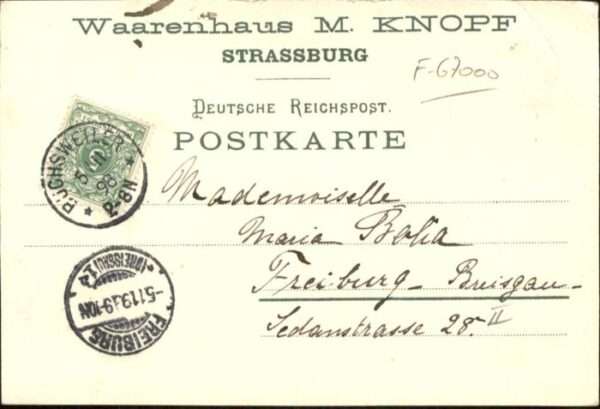 Waarenhaus M. KNOPF
STRASSBURG
F-67000
DEUTSCHE REICHSPOST.
POSTKARTE
BUCHSWEILER
5
98
7-8N
Mademoiselle
Maria Bolia
Freiburg-Breisgau-
Sedanstrasse 28. II
(BREISGAU)
9-10N
FREIBURG